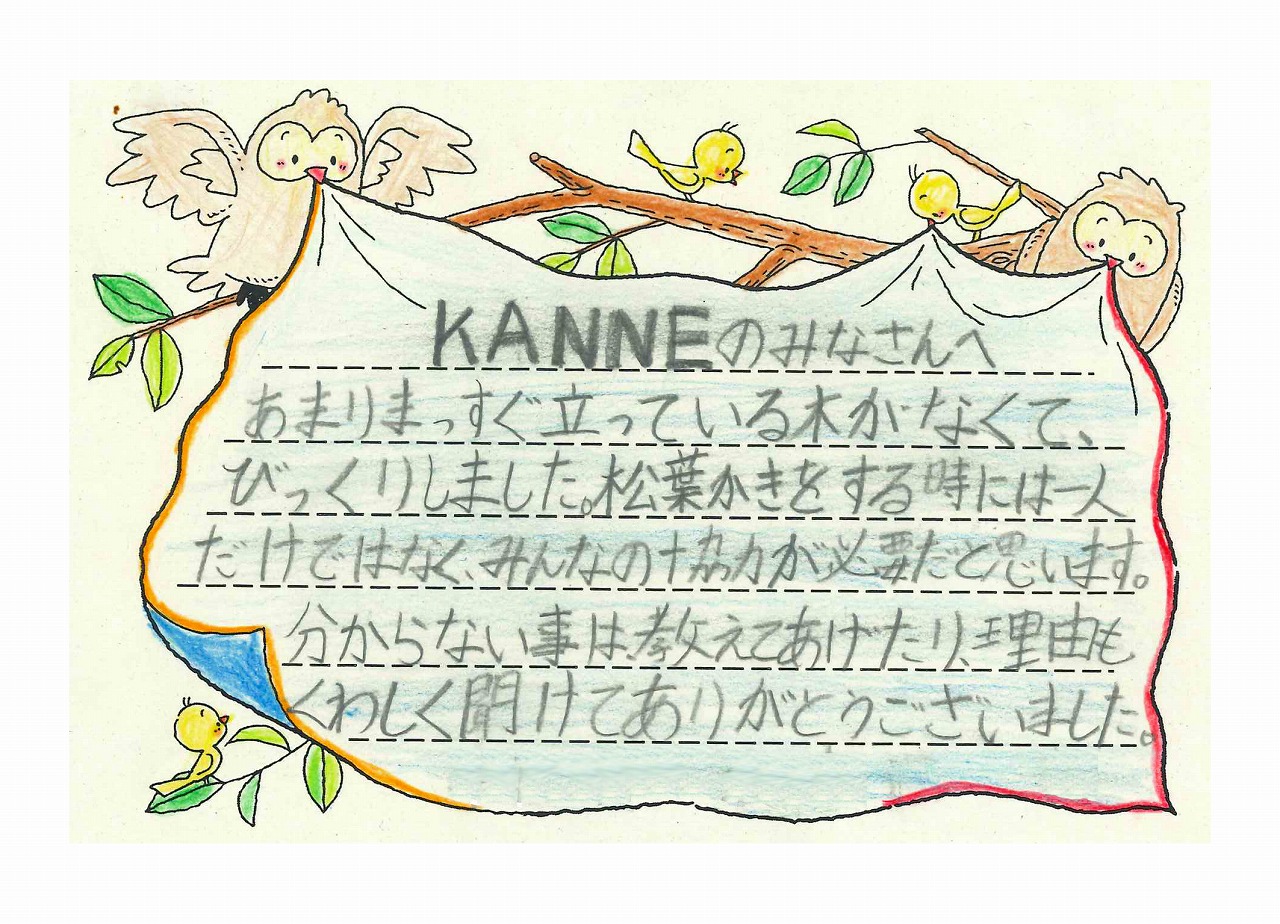 KANNEのみなさんへ
あまりまっすぐ立っている木がなくて、
びっくりしました。松葉かきをする時には一人
だけではなく、みんなの協力が必要だと思います。
分からない事は教えてあげたり、理由も
くわしく聞けてありがとうございました。